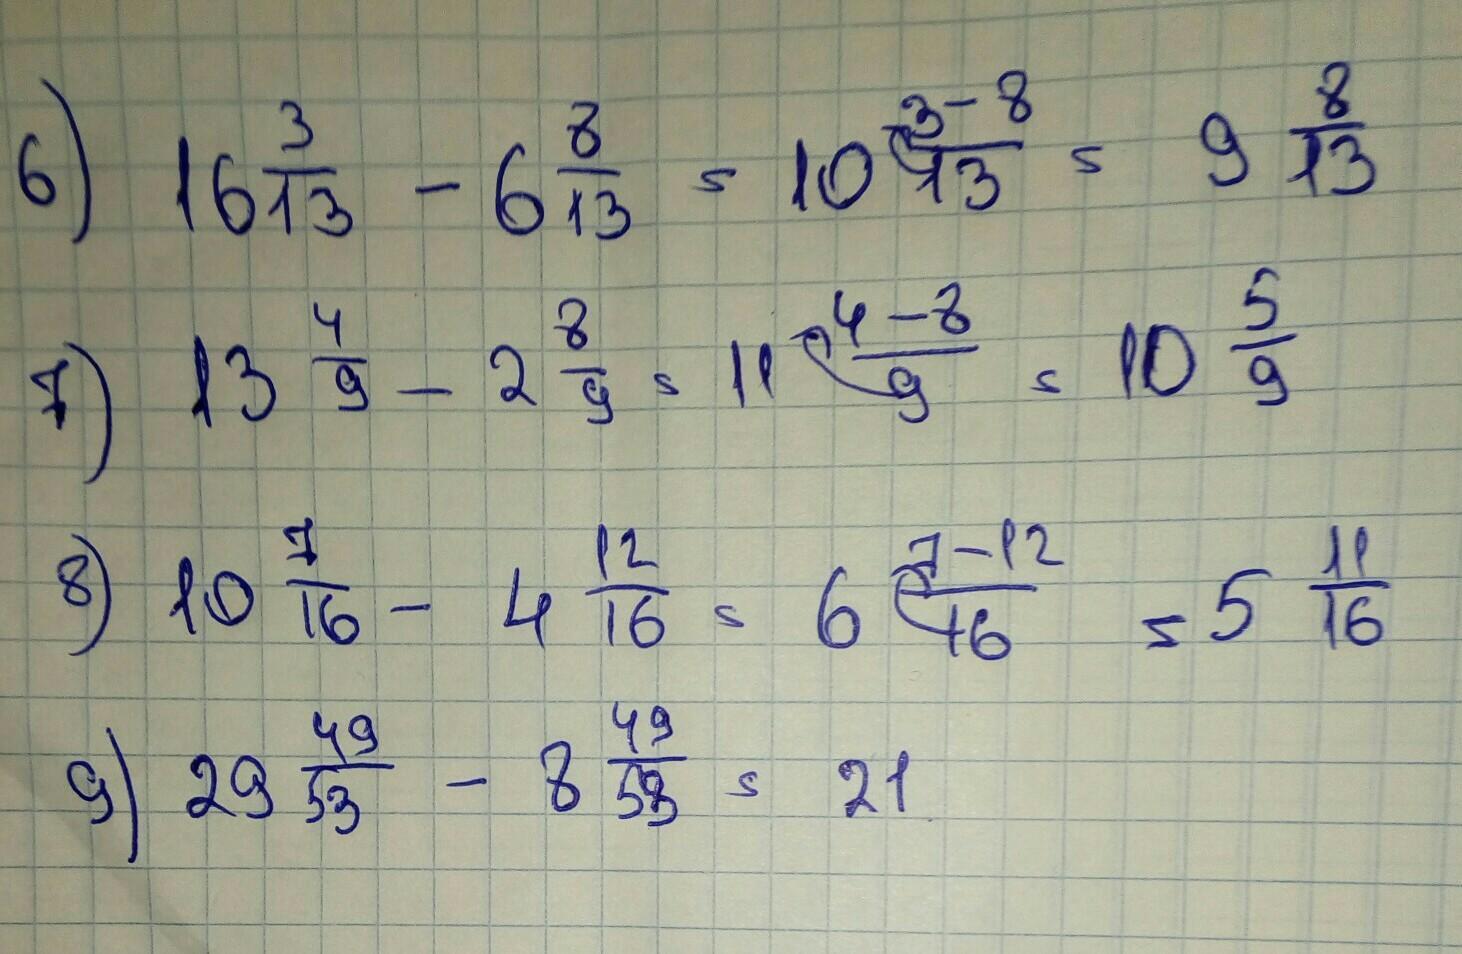 6) 16 3/13 - 6 8/13 = 10 3-8/13 = 9 8/13
7) 13 4/9 - 2 8/9 = 11 4-8/9 = 10 5/9
8) 10 7/16 - 4 12/16 = 6 7-12/16 = 5 11/16
9) 29 49/53 - 8 49/53 = 21